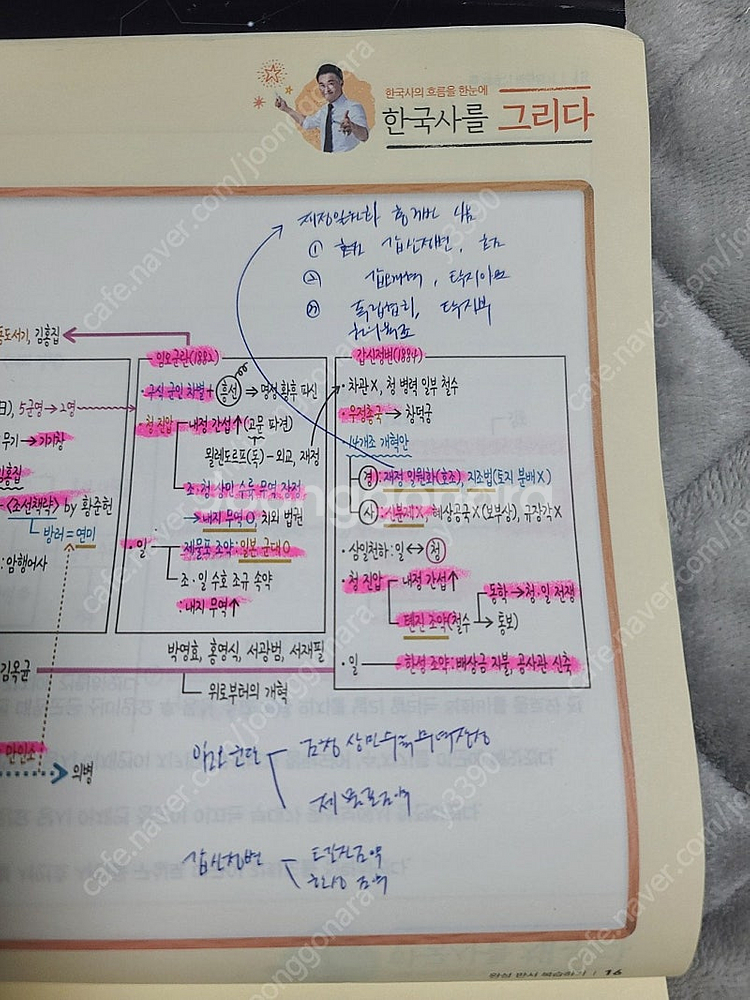 한국사의 흐름을 한눈에
한국사를 그리다
재정일원화
① 호조 갑신정변, 호조
② 갑오개혁, 탁지아문
③ 독립협회, 탁지부
동도서기, 김홍집
5군영 → 2영
무기 → 기기창
김홍집
<조선책략> by 황준헌
방러 = 연미
: 암행어사
김옥균
만인소
의병
임오군란(1882)
· 구식 군인 차별 + 흥선 → 명성 황후 피신
· 청 진압 내정 간섭↑ (고문 파견)
묄렌도르프(독) – 외교, 재정
조·청 상민 수륙 무역 장정
→ 내지 무역 O 치외 법권
· 일 제물포 조약: 일본 군대 O
조·일 수호 조규 속약
· 내지 무역↑
박영효, 홍영식, 서광범, 서재필
위로부터의 개혁
갑신정변(1884)
· 차관 X, 청 병력 일부 철수
· 우정총국 → 창덕궁
14개조 개혁안
경: 재정 일원화(호조) 지조법(토지 분배X)
사: 신분제 X, 혜상공국 X(보부상), 규장각 X
· 삼일천하: 일 ↔ 청
· 청 진압 내정 간섭↑
동학 → 청·일 전쟁
톈진 조약(철수 → 통보)
· 일 한성 조약: 배상금 지불, 공사관 신축
임오군란 조청상민수륙무역장정
제물포조약
갑신정변 톈진조약
한성조약
완성 판서 복습하기 | 16
joonggonara
cafe.naver.com/joonggonara
j3390